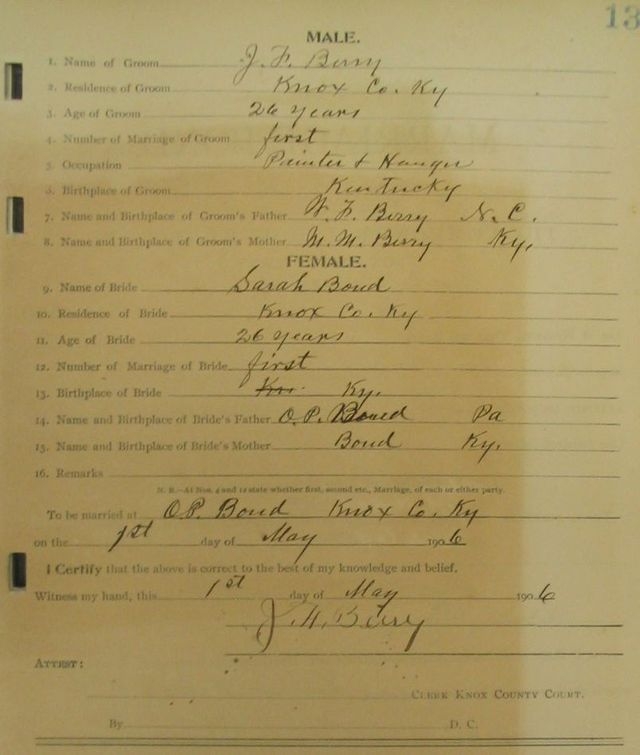 13
MALE.
1. Name of Groom J. F. Berry
2. Residence of Groom Knox Co. Ky
3. Age of Groom 26 years
4. Number of Marriage of Groom first
5. Occupation Painter & Hanger
6. Birthplace of Groom Kentucky
7. Name and Birthplace of Groom's Father W. F. Berry N. C.
8. Name and Birthplace of Groom's Mother M. M. Berry Ky.
FEMALE.
9. Name of Bride Sarah Bond
10. Residence of Bride Knox Co. Ky
11. Age of Bride 26 years
12. Number of Marriage of Bride first
13. Birthplace of Bride Kn. Ky.
14. Name and Birthplace of Bride's Father O. P. Bond Pa
15. Name and Birthplace of Bride's Mother Bond Ky.
16. Remarks
N. B.—At Nos. 4 and 12 state whether first, second etc., Marriage, of each or either party.
To be married at O.P. Bond Knox Co. Ky
on the 1st day of May 1906
I Certify that the above is correct to the best of my knowledge and belief.
Witness my hand, this 1st day of May 1906
Berry
ATTEST:
CLERK KNOX COUNTY COURT.
By D. C.